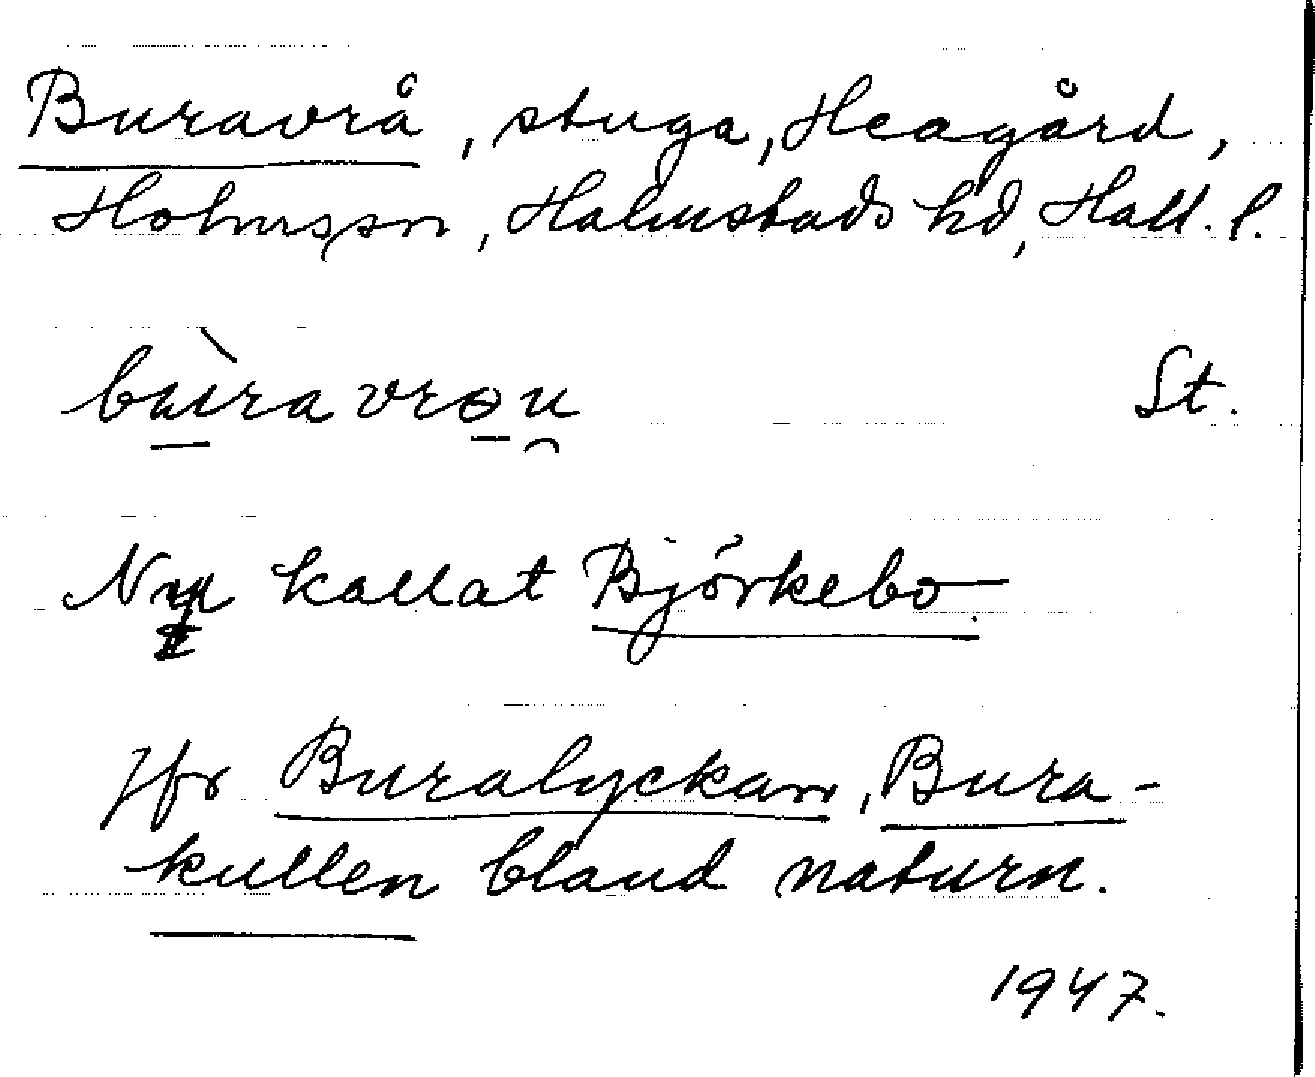 Buravrå, stuga, Heagård,
Holmssn, Halmstads hd, Hall. l.
bùravrɵu St.
Nu kallat Björkebo.
Jfr Buralyckan, Bura-
kullen bland naturn.
1947.